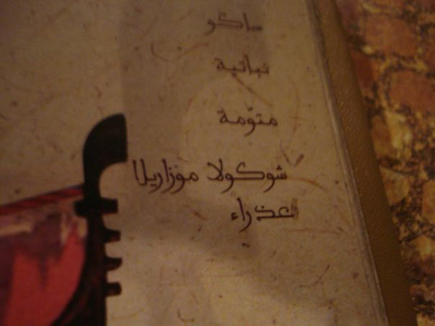 ساكو
نباتية
متوّمة
شوكولا موزاريلا
عذراء